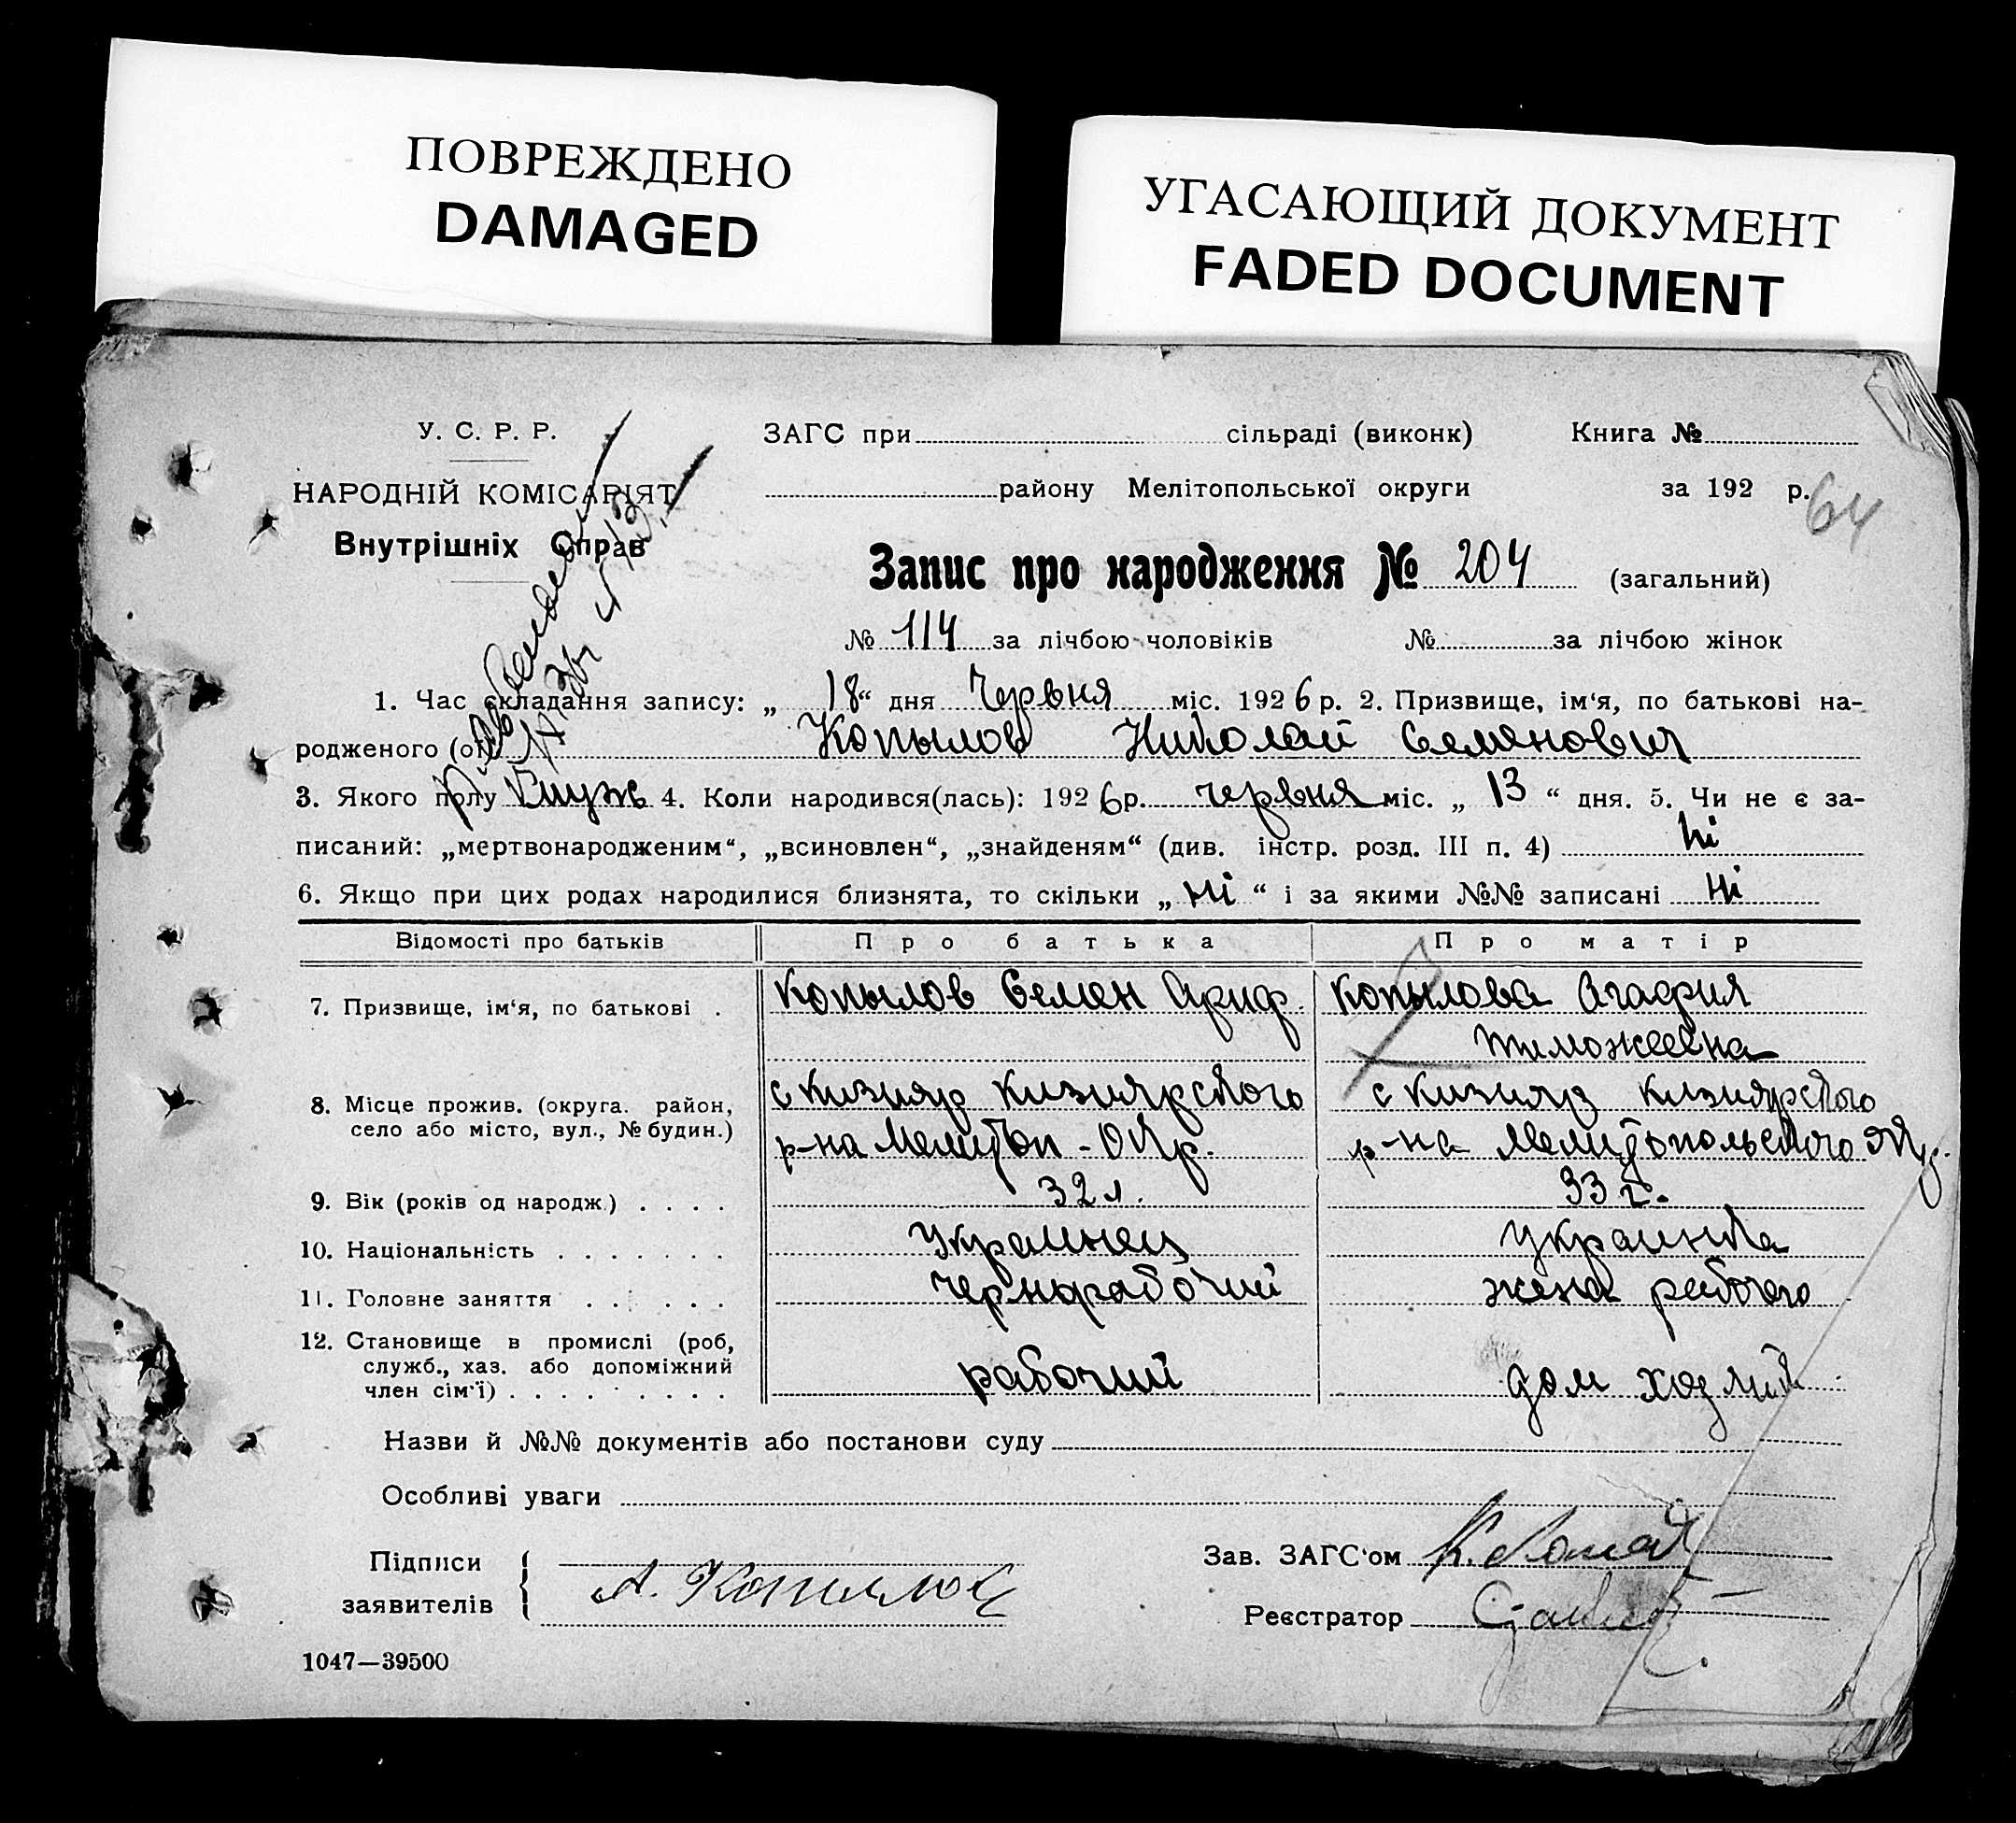 ПОВРЕЖДЕНО
DAMAGED
УГАСАЮЩИЙ ДОКУМЕНТ
FADED DOCUMENT
У. С. Р. Р.
НАРОДНІЙ КОМІСАРІЯТ
Внутрішніх Справ
ЗАГС при сільраді (виконк) Книга №
району Мелітопольської округи за 192 р.
64
Запис про народження № 204 (загальний)
№ 114 за лічбою чоловіків № за лічбою жінок
1. Час складання запису: „ 18“ дня Червня міс. 1926 р. 2. Призвище, ім‘я, по батькові на-
родженого (ої) Копылов Николай Семенович
3. Якого полу муж 4. Коли народився(лась): 1926 р. червня міс. „ 13 “ дня. 5. Чи не є за-
писаний: „мертвонародженим“, „всиновлен“, „знайденям“ (див. інстр. розд. III п. 4) ні
6. Якщо при цих родах народилися близнята, то скільки „ ні “ і за якими №№ записані ні
Відомості про батьків Про батька Про матір
7. Призвище, ім‘я, по батькові . Копылов Семен Ариф. Копылова Агафия
Тимофеевна
8. Місце прожив. (округа. район, село або місто, вул., № будин.)
с Кизияр Кизиярского
р-на Мелитоп - Окр.
с Кизияр Кизиярского
р-на Мелитопольского Окр.
9. Вік (років од народж.) . . . . 32 л. 33 г.
10. Національність . . . . . . . Украинец Украинка
11. Головне заняття . . . . . . чернорабочий жена рабочего
12. Становище в промислі (роб,
служб., хаз. або допоміжний
член сім‘ї) . . . . . . . . . рабочий дом хоз
Назви й №№ документів або постанови суду
Особливі уваги
Підписи
заявителів
А. Копылов
Зав. ЗАГС‘ом
Реєстратор
1047—39500